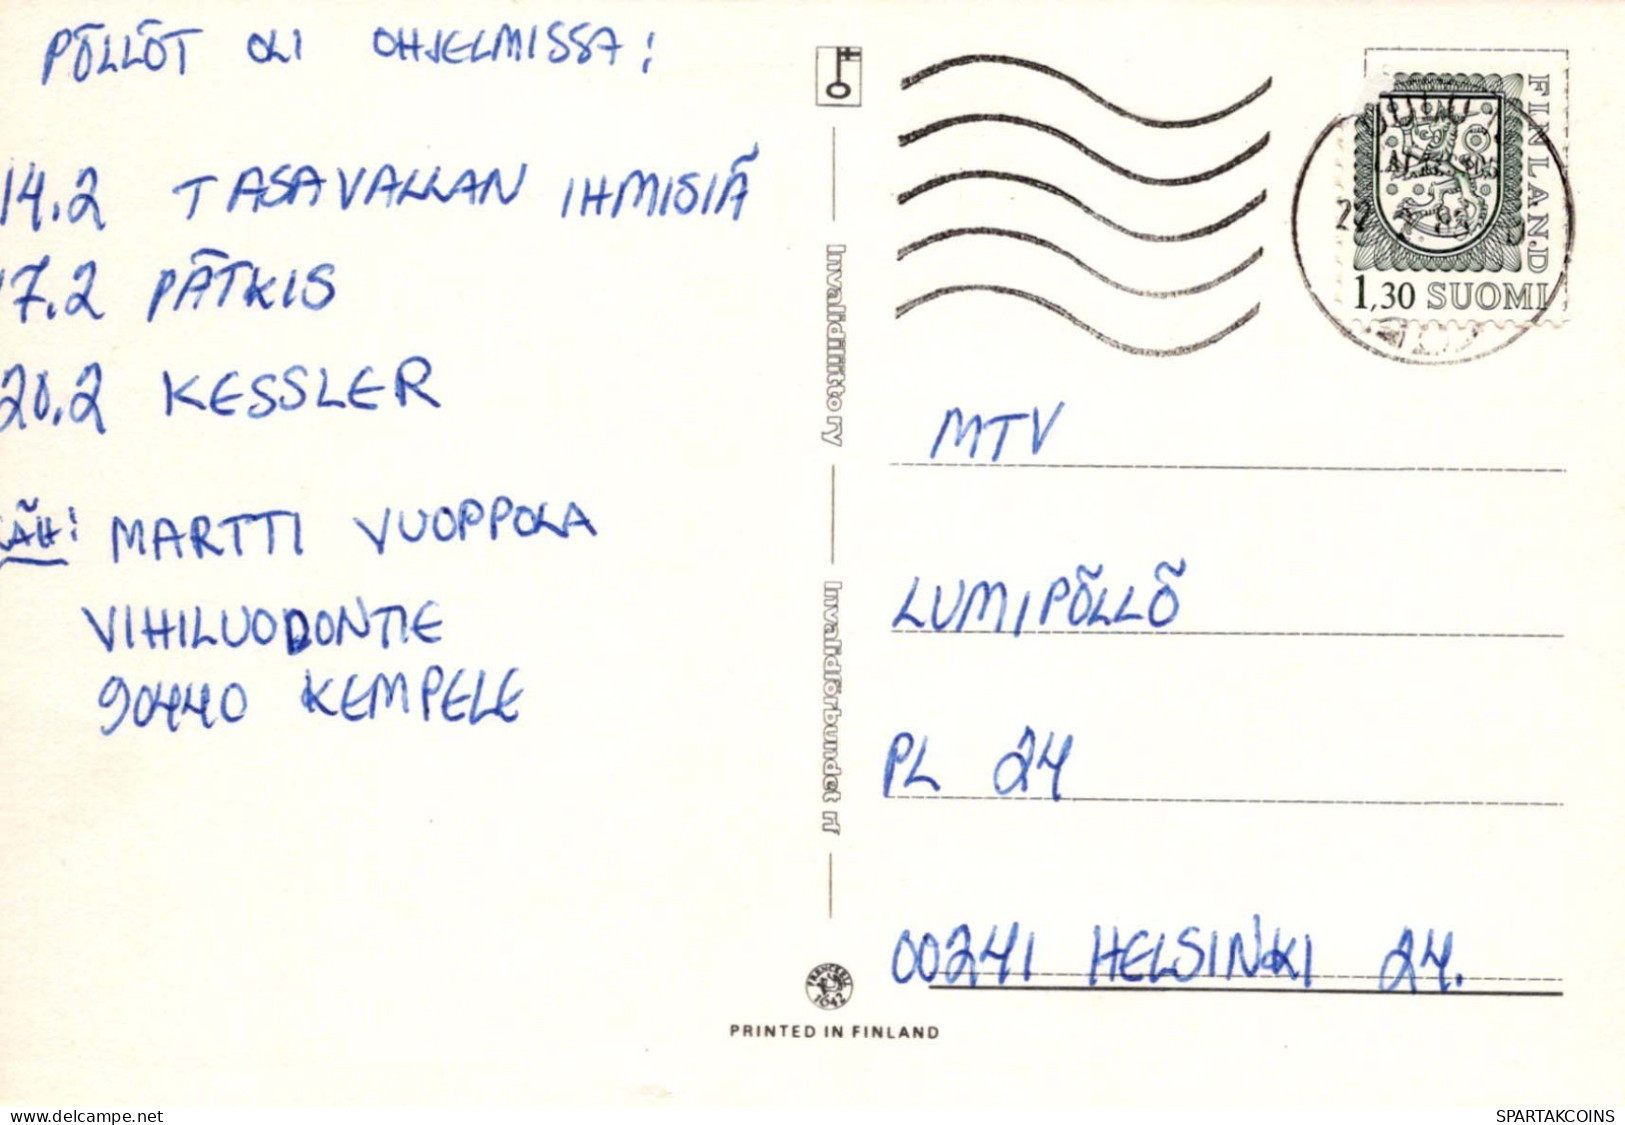 PÖLLÖT OLI OHJELMISSA:
14.2 TASAVALLAN IHMISIÄ
17.2 PÄTKIS
20.2 KESSLER
LÄH: MARTTI VUOPPOLA
VIHILUODONTIE
90440 KEMPELE
Invalidiliitto ry
Invalidförbundet rf
FRENCKELL
1642
PRINTED IN FINLAND
FINLAND
1,30 SUOMI
MTV
LUMIPÖLLÖ
PL 24
00241 HELSINKI 24.
www.delcampe.net
SPARTAKCOINS